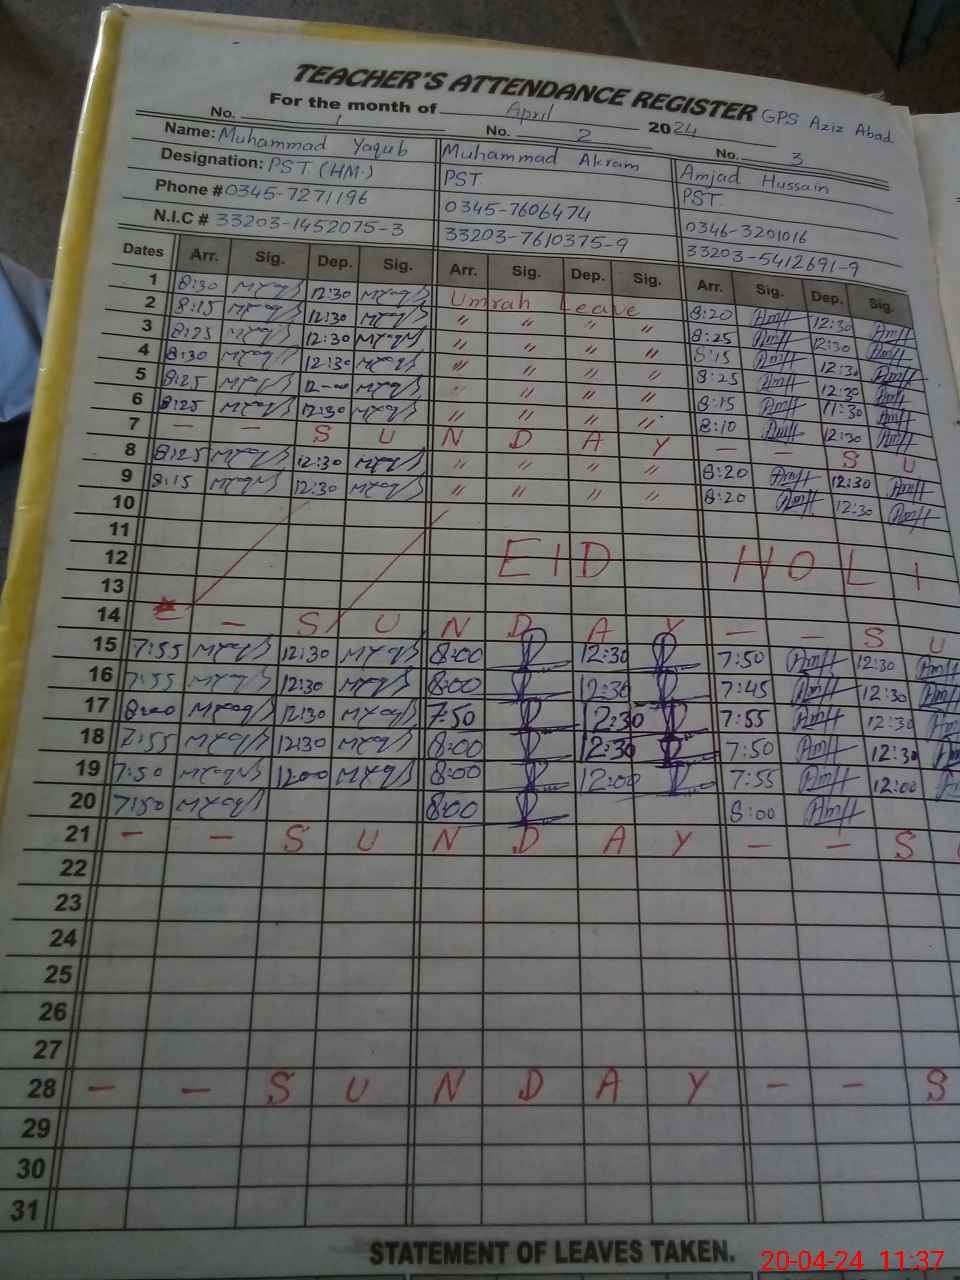 TEACHER'S ATTENDANCE REGISTER GPS Aziz Abad
For the month of April 2024
No. 1 No. 2 No. 3
Name: Muhammad Yaqub Muhammad Akram Amjad Hussain
Designation: PST (HM) PST PST
Phone # 0345-7271196 0345-7606474 0346-3201016
N.I.C # 33203-1452075-3 33203-7610375-9 33203-5412691-9
Dates Arr. Sig. Dep. Sig. Arr. Sig. Dep. Sig. Arr. Sig. Dep. Sig.
1 8:30 12:30 Umrah Leave 8:20 12:30
2 8:15 12:30 " " " " 8:25 12:30
3 8:25 12:30 " " " " 8:15 12:30
4 8:30 12:30 " " " " 8:25 12:30
5 8:25 " " " 8:15 11:30
6 8:25 12:30 " " " " 8:10 12:30
7 — — S U N D A Y — — S U
8 8:25 12:30 " " " " 8:20 12:30
9 8:15 12:30 " " " " 8:20 12:30
10
11
12 EID HOLI
13
14 — S U N D A Y — — S U
15 7:55 12:30 8:00 12:30 7:50 12:30
16 7:55 12:30 8:00 12:30 7:45 12:30
17 8:00 12:30 7:50 12:30 7:55 12:30
18 7:55 12:30 8:00 12:30 7:50 12:30
19 7:50 12:00 8:00 12:00 7:55 12:00
20 7:50 8:00 8:00
21 — — S U N D A Y — — S
22
23
24
25
26
27
28 — — S U N D A Y — — S
29
30
31
STATEMENT OF LEAVES TAKEN.
20-04-24 11:37